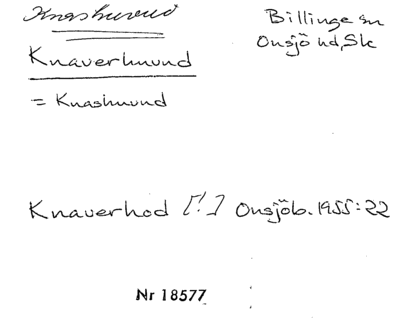 Knashuvud
Billinge sn
Onsjö hd, Sk
Knaverhuvud
= Knashuvud
Knaverhod [!] Onsjöb. 1955:22
Nr 18577